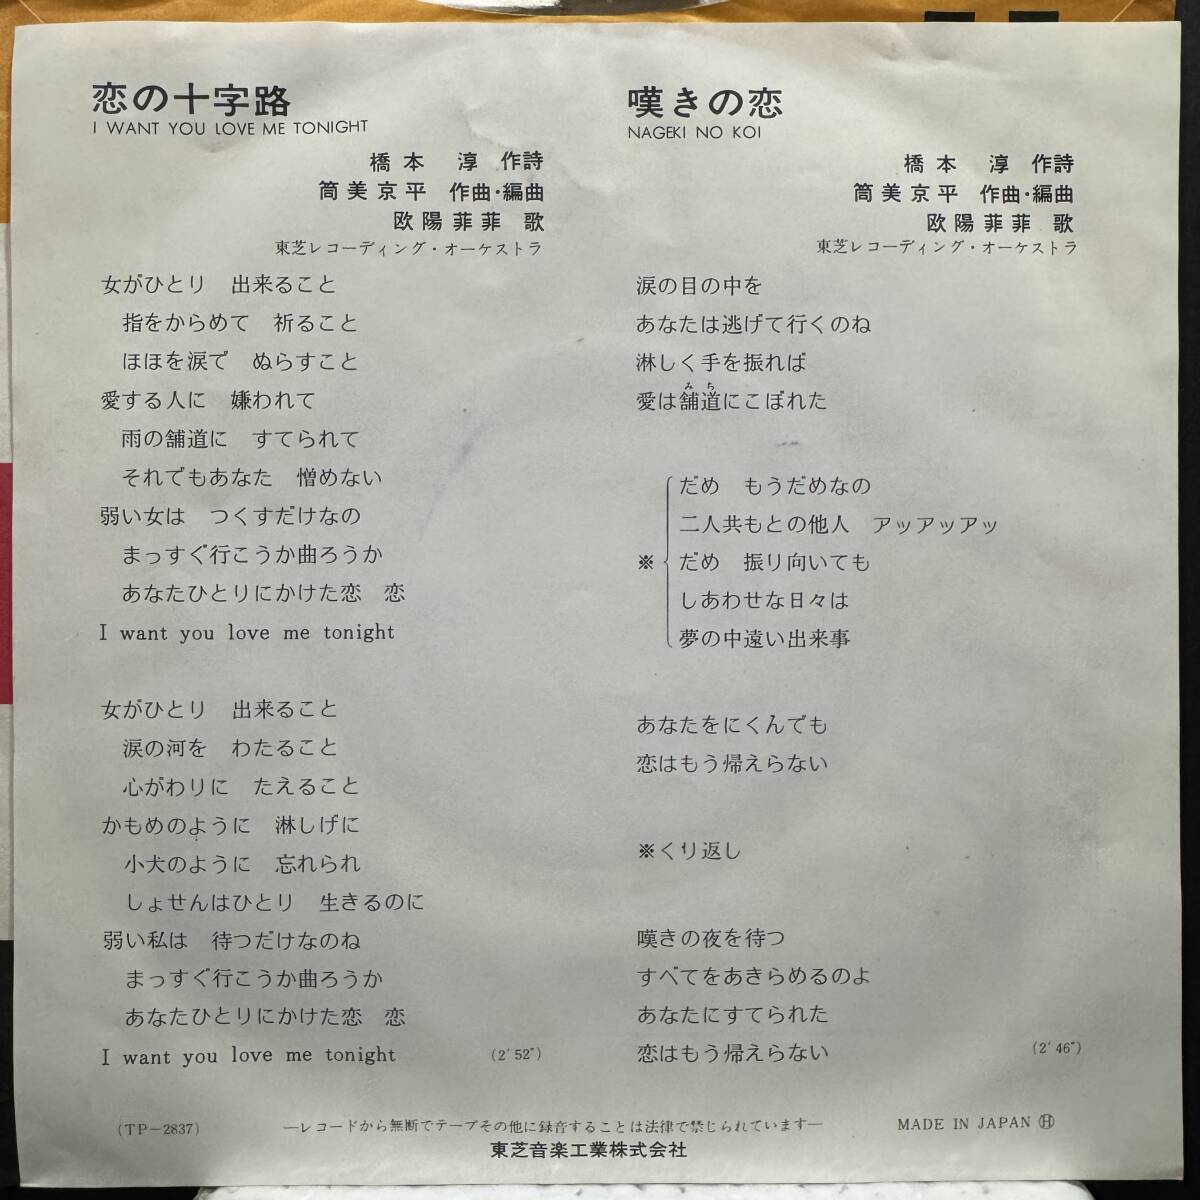 恋の十字路
I WANT YOU LOVE ME TONIGHT
橋本 淳 作詩
筒美京平 作曲・編曲
欧陽菲菲 歌
東芝レコーディング・オーケストラ
女がひとり 出来ること
指をからめて 祈ること
ほほを涙で ぬらすこと
愛する人に 嫌われて
雨の舗道に すてられて
それでもあなた 憎めない
弱い女は つくすだけなの
まっすぐ行こうか曲ろうか
あなたひとりにかけた恋 恋
I want you love me tonight
女がひとり 出来ること
涙の河を わたること
心がわりに たえること
かもめのように 淋しげに
小犬のように 忘れられ
しょせんはひとり 生きるのに
弱い私は 待つだけなのね
まっすぐ行こうか曲ろうか
あなたひとりにかけた恋 恋
I want you love me tonight (2′52″)
嘆きの恋
NAGEKI NO KOI
橋本 淳 作詩
筒美京平 作曲・編曲
欧陽菲菲 歌
東芝レコーディング・オーケストラ
涙の目の中を
あなたは逃げて行くのね
淋しく手を振れば
みち
愛は舗道にこぼれた
だめ もうだめなの
二人共もとの他人 アッアッアッ
※だめ 振り向いても
しあわせな日々は
夢の中遠い出来事
あなたをにくんでも
恋はもう帰えらない
※くり返し
嘆きの夜を待つ
すべてをあきらめるのよ
あなたにすてられた
恋はもう帰えらない (2′46″)
(TP-2837) ―レコードから無断でテープその他に録音することは法律で禁じられています― MADE IN JAPAN Ⓗ
東芝音楽工業株式会社